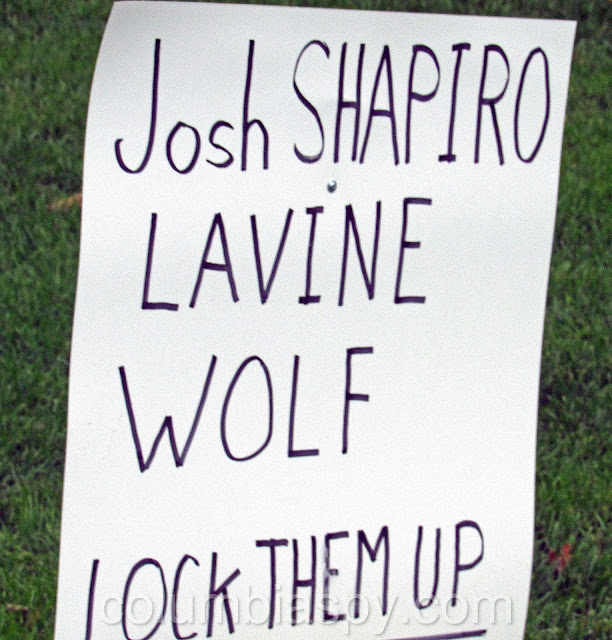 Josh SHAPIRO
LAVINE
WOLF
LOCK THEM UP
columbiaspy.com